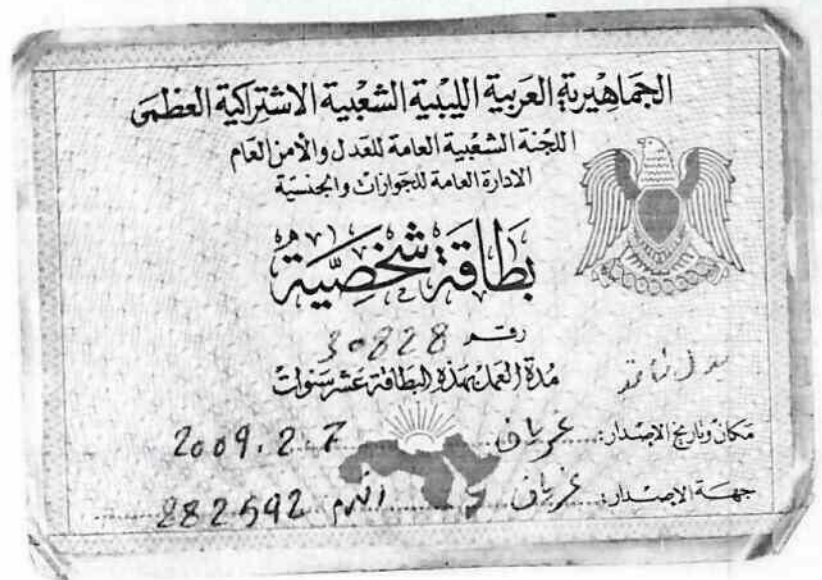 الجماهيرية العربية الليبية الشعبية الاشتراكية العظمى
اللجنة الشعبية العامة للعدل والأمن العام
الادارة العامة للجوازات والجنسية
بطاقة شخصية
رقم 30828
بدل فاقد
مدة العمل بهذه البطاقة عشر سنوات
مكان وتاريخ الاصدار: غريان 2009.2.7
جهة الاصدار: غريان 282592